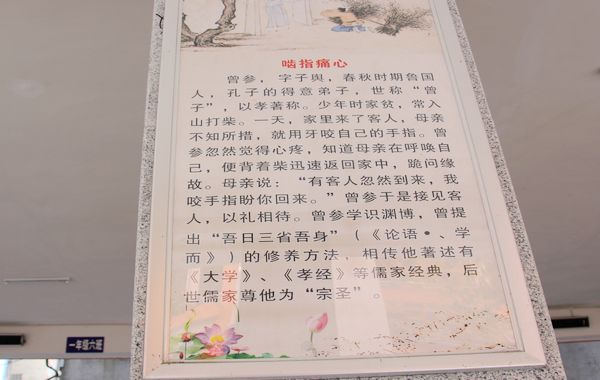 啮指痛心
曾参，字子舆，春秋时期鲁国
人，孔子的得意弟子，世称“曾
子”，以孝著称。少年时家贫，常入
山打柴。一天，家里来了客人，母亲
不知所措，就用牙咬自己的手指。曾
参忽然觉得心疼，知道母亲在呼唤自
己，便背着柴迅速返回家中，跪问缘
故。母亲说：“有客人忽然到来，我
咬手指盼你回来。”曾参于是接见客
人，以礼相待。曾参学识渊博，曾提
出“吾日三省吾身”（《论语·、学
而》）的修养方法，相传他著述有
《大学》、《孝经》等儒家经典，后
世儒家尊他为“宗圣”。
一年级六班